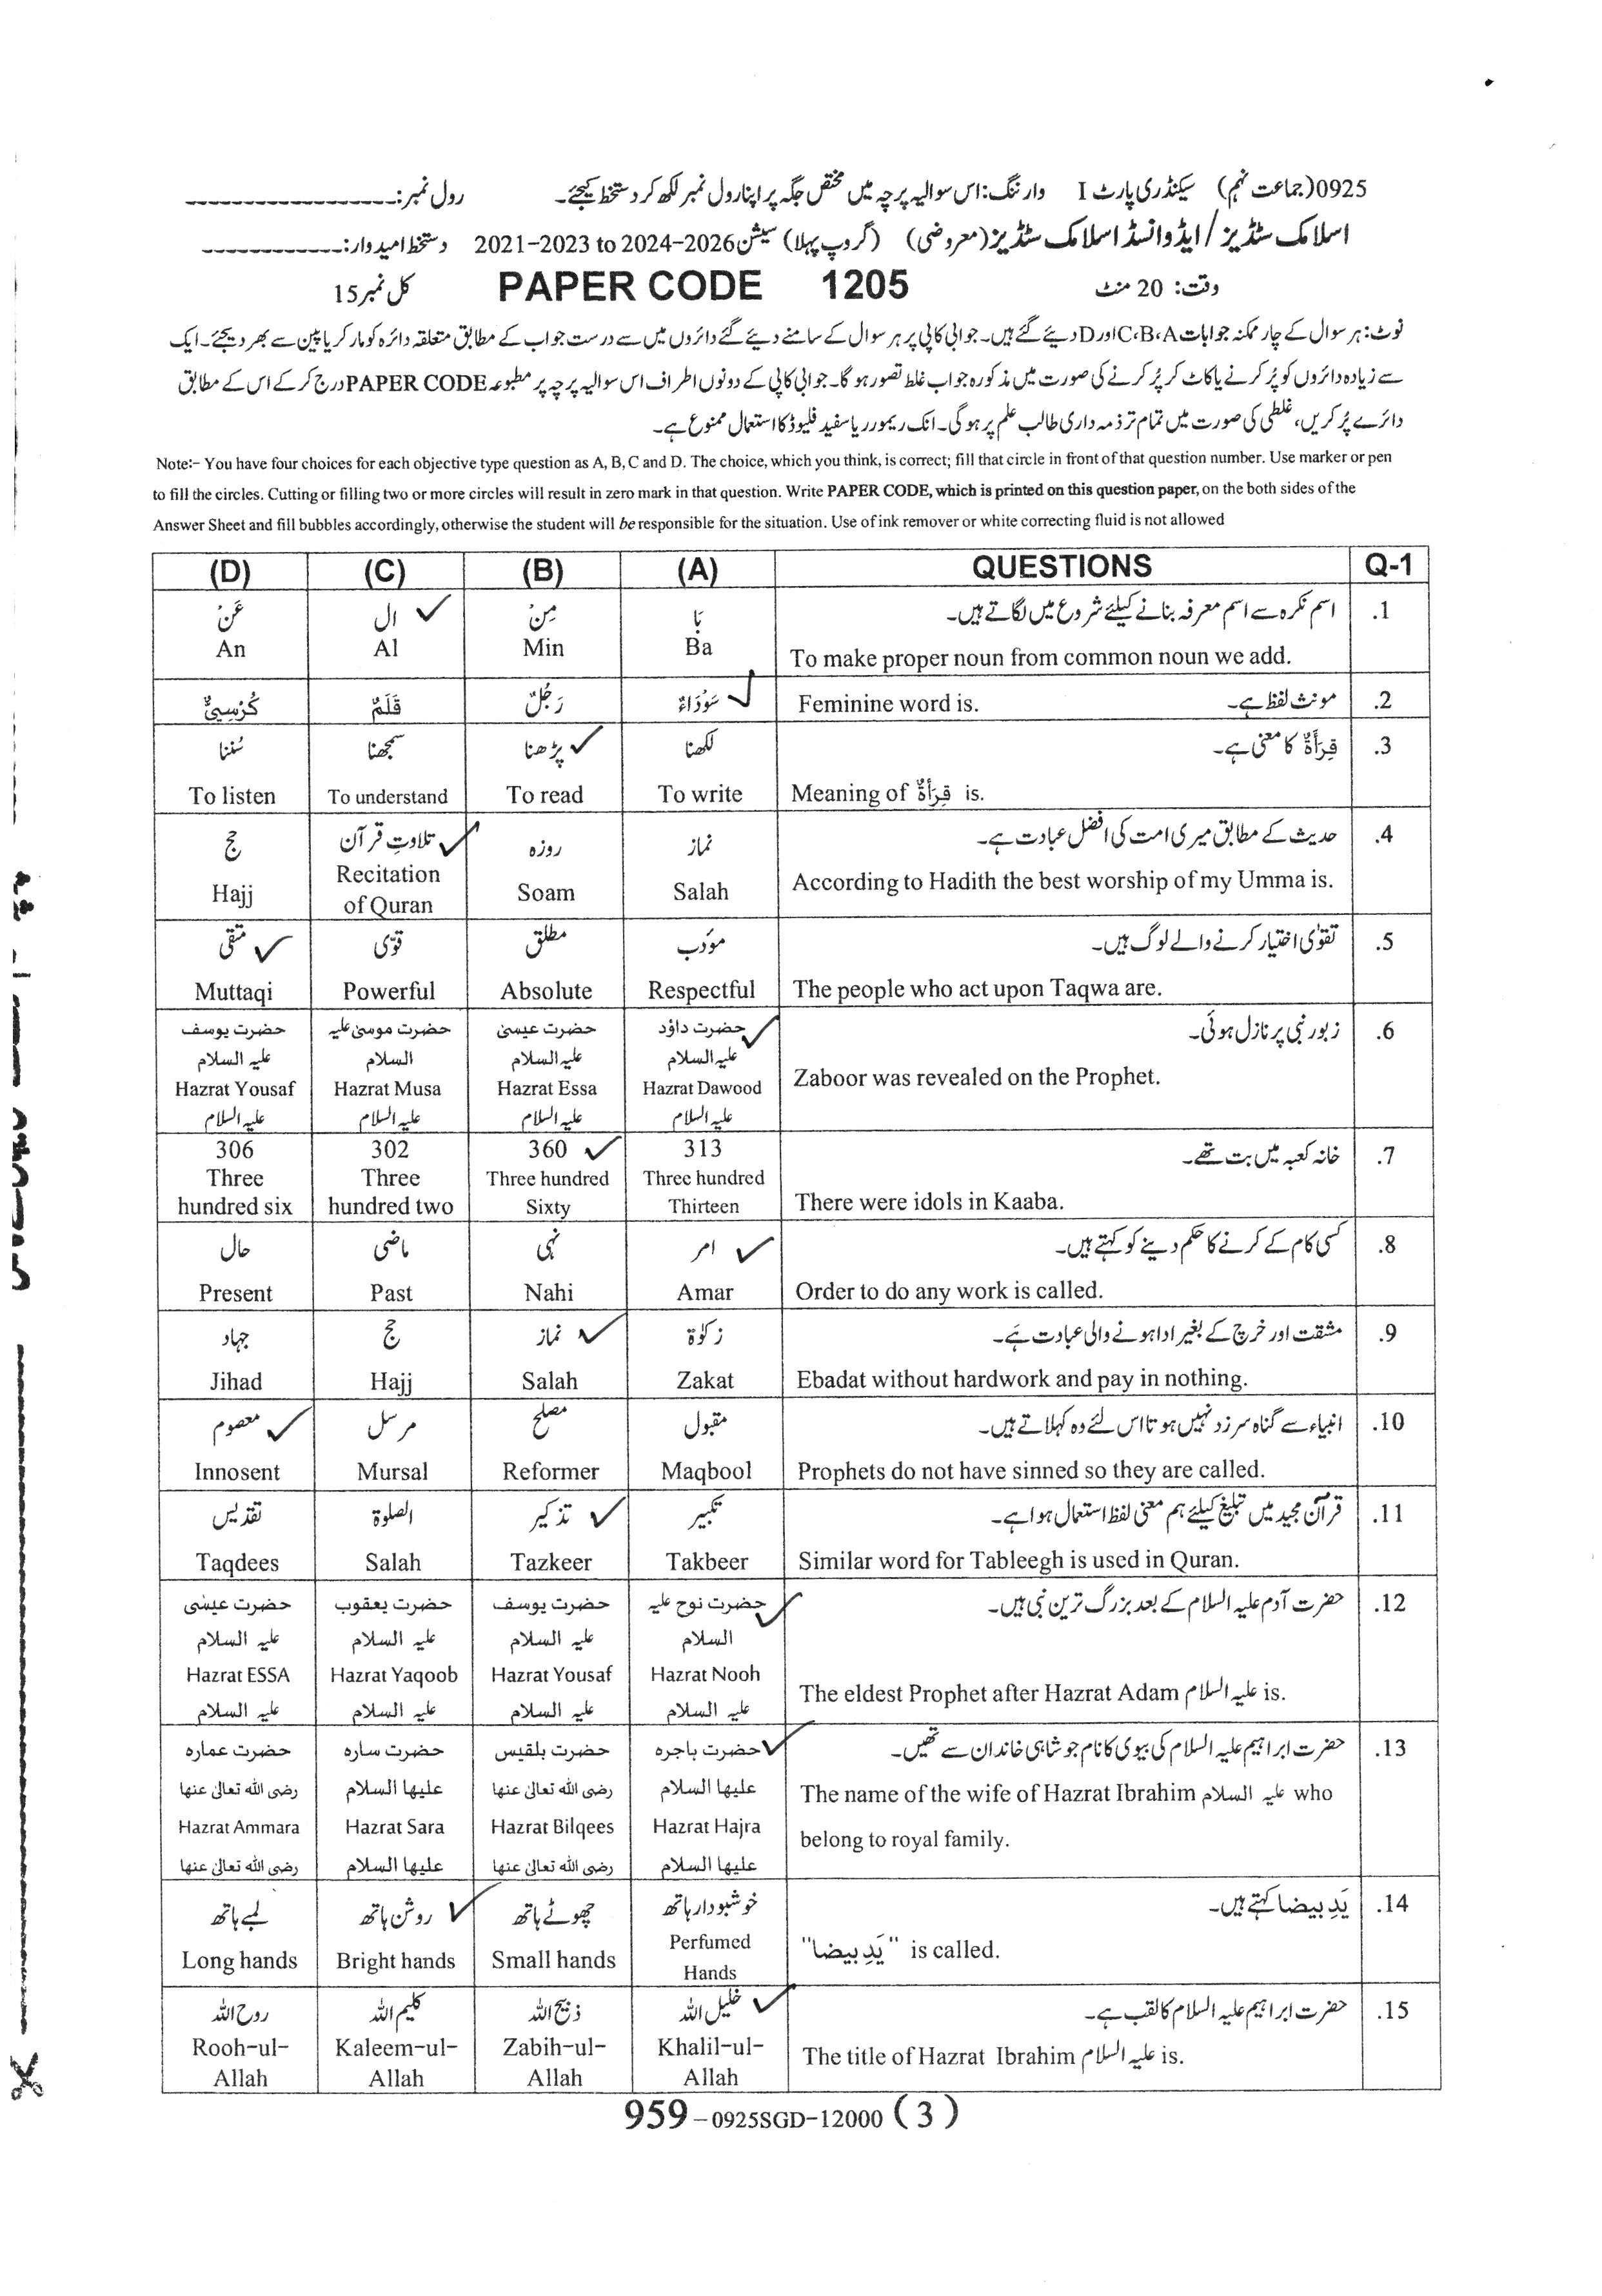 0925(جماعت نہم) سیکنڈری پارٹ I وارننگ: اس سوالیہ پرچہ میں مختص جگہ پر اپنا رول نمبر لکھ کر دستخط کیجئے۔ رول نمبر: ------------------
اسلامک سٹڈیز/ایڈوانسڈ اسلامک سٹڈیز (معروضی) (گروپ پہلا) سیشن 2021-2023 to 2024-2026 دستخط امیدوار: ------------
وقت: 20 منٹ PAPER CODE 1205 کل نمبر 15
نوٹ: ہر سوال کے چار ممکنہ جوابات C،B،A اور D دیئے گئے ہیں۔ جوابی کاپی پر ہر سوال کے سامنے دیئے گئے دائروں میں سے درست جواب کے مطابق متعلقہ دائرہ کو مارکر یا پین سے بھر دیجئے۔ ایک
سے زیادہ دائروں کو پُر کرنے یا کاٹ کر پُر کرنے کی صورت میں مذکورہ جواب غلط تصور ہو گا۔ جوابی کاپی کے دونوں اطراف اس سوالیہ پرچہ پر مطبوعہ PAPER CODE درج کر کے اس کے مطابق
دائرے پُر کریں، غلطی کی صورت میں تمام تر ذمہ داری طالب علم پر ہو گی۔ انک ریمور یا سفید فلیوڈ کا استعمال ممنوع ہے۔
Note:- You have four choices for each objective type question as A, B, C and D. The choice, which you think, is correct; fill that circle in front of that question number. Use marker or pen
to fill the circles. Cutting or filling two or more circles will result in zero mark in that question. Write PAPER CODE, which is printed on this question paper, on the both sides of the
Answer Sheet and fill bubbles accordingly, otherwise the student will be responsible for the situation. Use of ink remover or white correcting fluid is not allowed
(D) (C) (B) (A) QUESTIONS Q-1
.1 اسم نکرہ سے اسم معرفہ بنانے کیلئے شروع میں لگاتے ہیں۔ بَا مِنْ ال عَنْ
An Al Min Ba To make proper noun from common noun we add.
.2 مونث لفظ ہے۔ Feminine word is. سَوْدَاءُ رَجُلٌ قَلَمٌ كُرْسِيٌّ
.3 قِرَأَةٌ کا معنی ہے۔ لکھنا پڑھنا سمجھنا سُننا
To listen To understand To read To write Meaning of قِرَأَةٌ is.
.4 حدیث کے مطابق میری امت کی افضل عبادت ہے۔ نماز روزہ تلاوتِ قرآن حج
Hajj Recitation of Quran Soam Salah According to Hadith the best worship of my Umma is.
.5 تقوٰی اختیار کرنے والے لوگ ہیں۔ مؤدب مطلق قوّی متقی
Muttaqi Powerful Absolute Respectful The people who act upon Taqwa are.
.6 زبور نبی پر نازل ہوئی۔ حضرت داؤد علیہ السلام حضرت عیسیٰ علیہ السلام حضرت موسیٰ علیہ السلام حضرت یوسف علیہ السلام
Hazrat Yousaf علیہ السلام Hazrat Musa علیہ السلام Hazrat Essa علیہ السلام Hazrat Dawood علیہ السلام Zaboor was revealed on the Prophet.
.7 خانہ کعبہ میں بت تھے۔ 313 360 302 306
Three hundred six Three hundred two Three hundred Sixty Three hundred Thirteen There were idols in Kaaba.
.8 کسی کام کے کرنے کا حکم دینے کو کہتے ہیں۔ امر نہی ماضی حال
Present Past Nahi Amar Order to do any work is called.
.9 مشقت اور خرچ کے بغیر ادا ہونے والی عبادت ہے۔ زکوٰۃ نماز حج جہاد
Jihad Hajj Salah Zakat Ebadat without hardwork and pay in nothing.
.10 انبیاء سے گناہ سرزد نہیں ہوتا اس لئے وہ کہلاتے ہیں۔ مقبول مصلح مرسل معصوم
Innosent Mursal Reformer Maqbool Prophets do not have sinned so they are called.
.11 قرآن مجید میں تبلیغ کیلئے ہم معنی لفظ استعمال ہوا ہے۔ تکبیر تذکیر الصلوۃ تقدیس
Taqdees Salah Tazkeer Takbeer Similar word for Tableegh is used in Quran.
.12 حضرت آدم علیہ السلام کے بعد بزرگ ترین نبی ہیں۔ حضرت نوح علیہ السلام حضرت یوسف علیہ السلام حضرت یعقوب علیہ السلام حضرت عیسٰی علیہ السلام
Hazrat ESSA علیہ السلام Hazrat Yaqoob علیہ السلام Hazrat Yousaf علیہ السلام Hazrat Nooh علیہ السلام The eldest Prophet after Hazrat Adam علیہ السلام is.
.13 حضرت ابراہیم علیہ السلام کی بیوی کا نام جو شاہی خاندان سے تھیں۔ حضرت ہاجرہ علیہا السلام حضرت بلقیس رضی اللہ تعالیٰ عنہا حضرت سارہ علیہا السلام حضرت عمارہ رضی اللہ تعالیٰ عنہا
Hazrat Ammara رضی اللہ تعالیٰ عنہا Hazrat Sara علیہا السلام Hazrat Bilqees رضی اللہ تعالیٰ عنہا Hazrat Hajra علیہا السلام The name of the wife of Hazrat Ibrahim علیہ السلام who
belong to royal family.
.14 یَدِ بیضا کہتے ہیں۔ خوشبودار ہاتھ چھوٹے ہاتھ روشن ہاتھ لمبے ہاتھ
Long hands Bright hands Small hands Perfumed Hands "یَدِ بیضا" is called.
.15 حضرت ابراہیم علیہ السلام کا لقب ہے۔ خلیل اللہ ذبیح اللہ کلیم اللہ روح اللہ
Rooh-ul-Allah Kaleem-ul-Allah Zabih-ul-Allah Khalil-ul-Allah The title of Hazrat Ibrahim علیہ السلام is.
959-0925SGD-12000 (3)